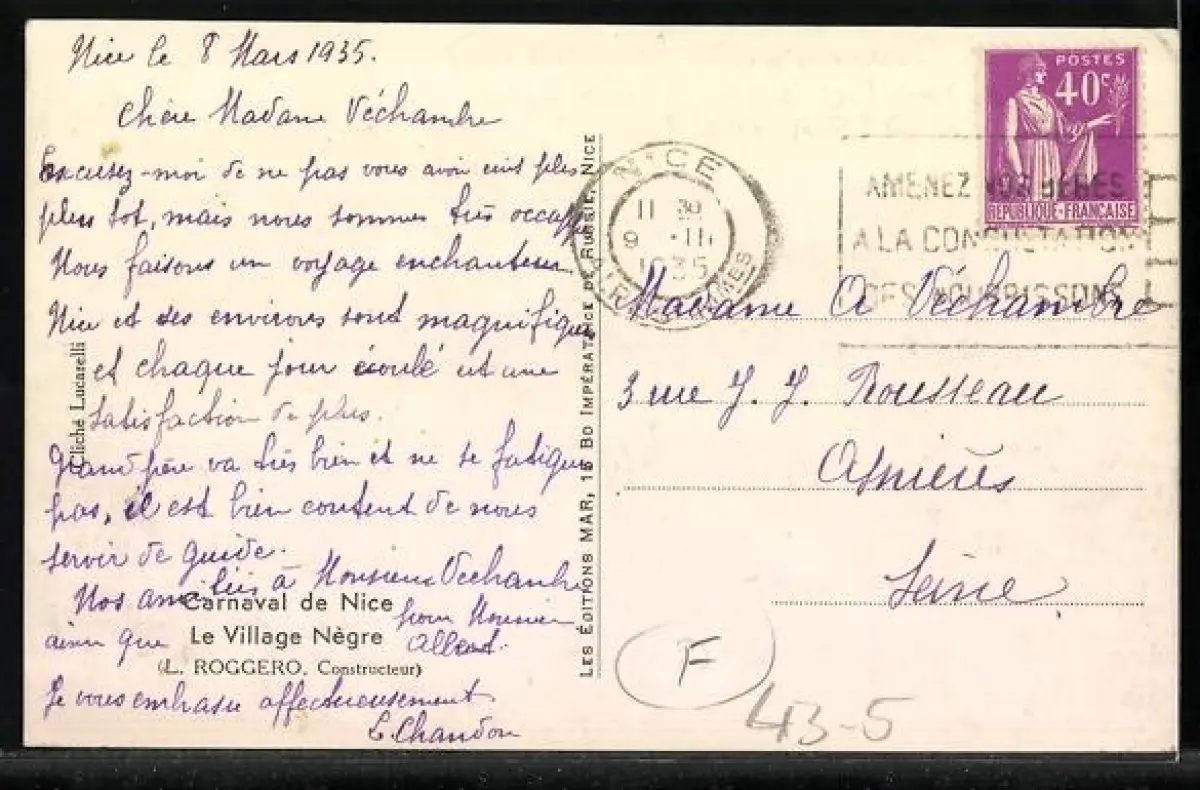 Nice le 8 Mars 1935.
Chère Madame Véchambre
Excusez-moi de ne pas vous avoir écrit plus
plus tot, mais nous sommes très occupés
Nous faisons un voyage enchanteur.
Nice et ses environs sont magnifiques
et chaque jour écoulé est une
satisfaction de plus.
Grand père va très bien et ne se fatigue
pas, il est bien content de nous
servir de guide.
Nos amitiés à Monsieur Véchambre
ainsi que pour Monsieur
Je vous embrasse affectueusement
Chandon
Cliché Lucarelli
Carnaval de Nice
Le Village Nègre
(L. ROGGERO, Constructeur)
LES ÉDITIONS MAR, 15 BD IMPÉRATRICE DE RUSSIE, NICE
POSTES
40c
RÉPUBLIQUE-FRANÇAISE
NICE
11 30
9 III
1935
AMENEZ VOS BÉBÉS
A LA CONSULTATION
DES NOURRISSONS
Madame A Véchambre
3 rue J. J. Rousseau
Asnières
Seine
F
43-5